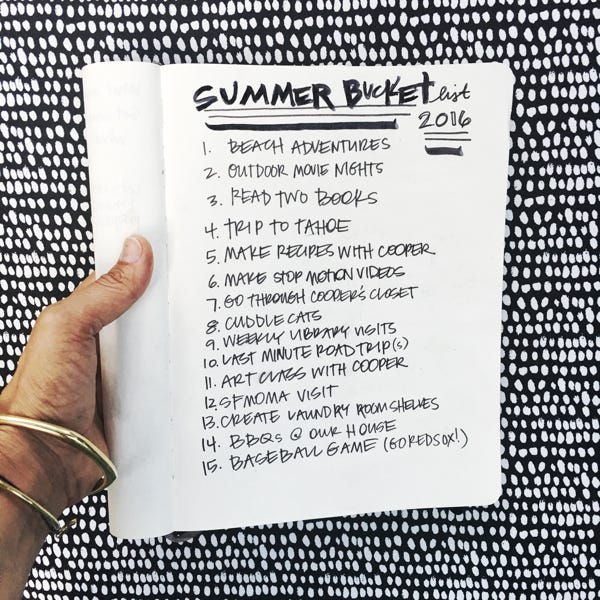 SUMMER BUCKET list
2016
1. BEACH ADVENTURES
2. OUTDOOR MOVIE NIGHTS
3. READ TWO BOOKS
4. TRIP TO TAHOE
5. MAKE RECIPES WITH COOPER
6. MAKE STOP MOTION VIDEOS
7. GO THROUGH COOPER'S CLOSET
8. CUDDLE CATS
9. WEEKLY LIBRARY VISITS
10. LAST MINUTE ROAD TRIP(s)
11. ART CLASS WITH COOPER
12. SFMOMA VISIT
13. CREATE LAUNDRY ROOM SHELVES
14. BBQs @ OUR HOUSE
15. BASEBALL GAME (GO REDSOX!)